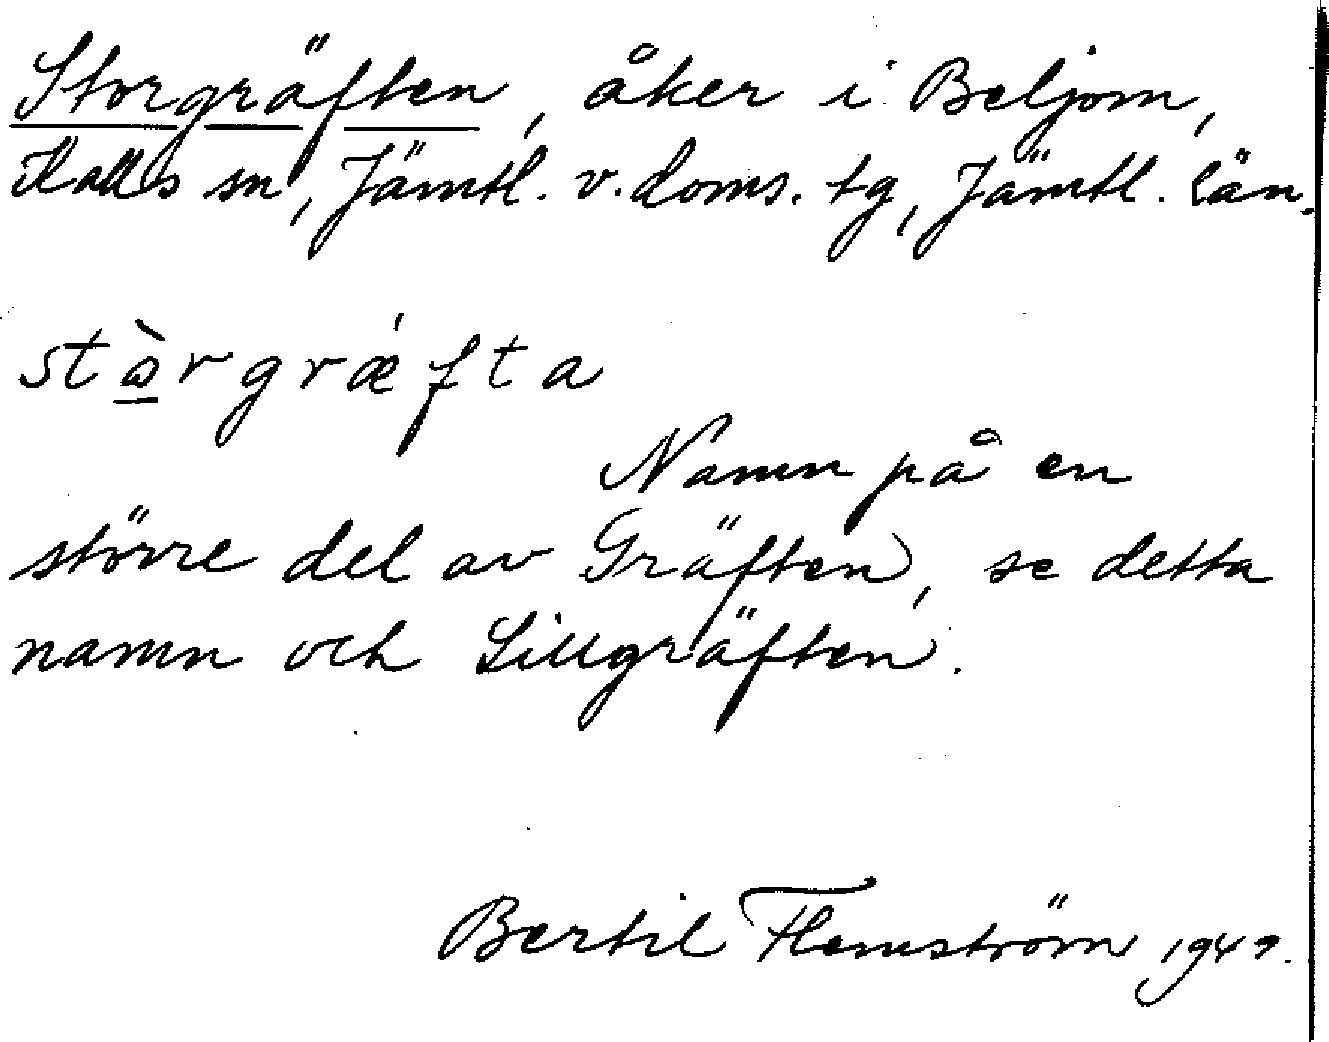 Storgräften, åker i Beljom,
Kalls sn, Jämtl. v. doms. tg, Jämtl. län.
stòrgræ´fta
Namn på en
större del av Gräften, se detta
namn och Lillgräften.
Bertil Flemström 1949.